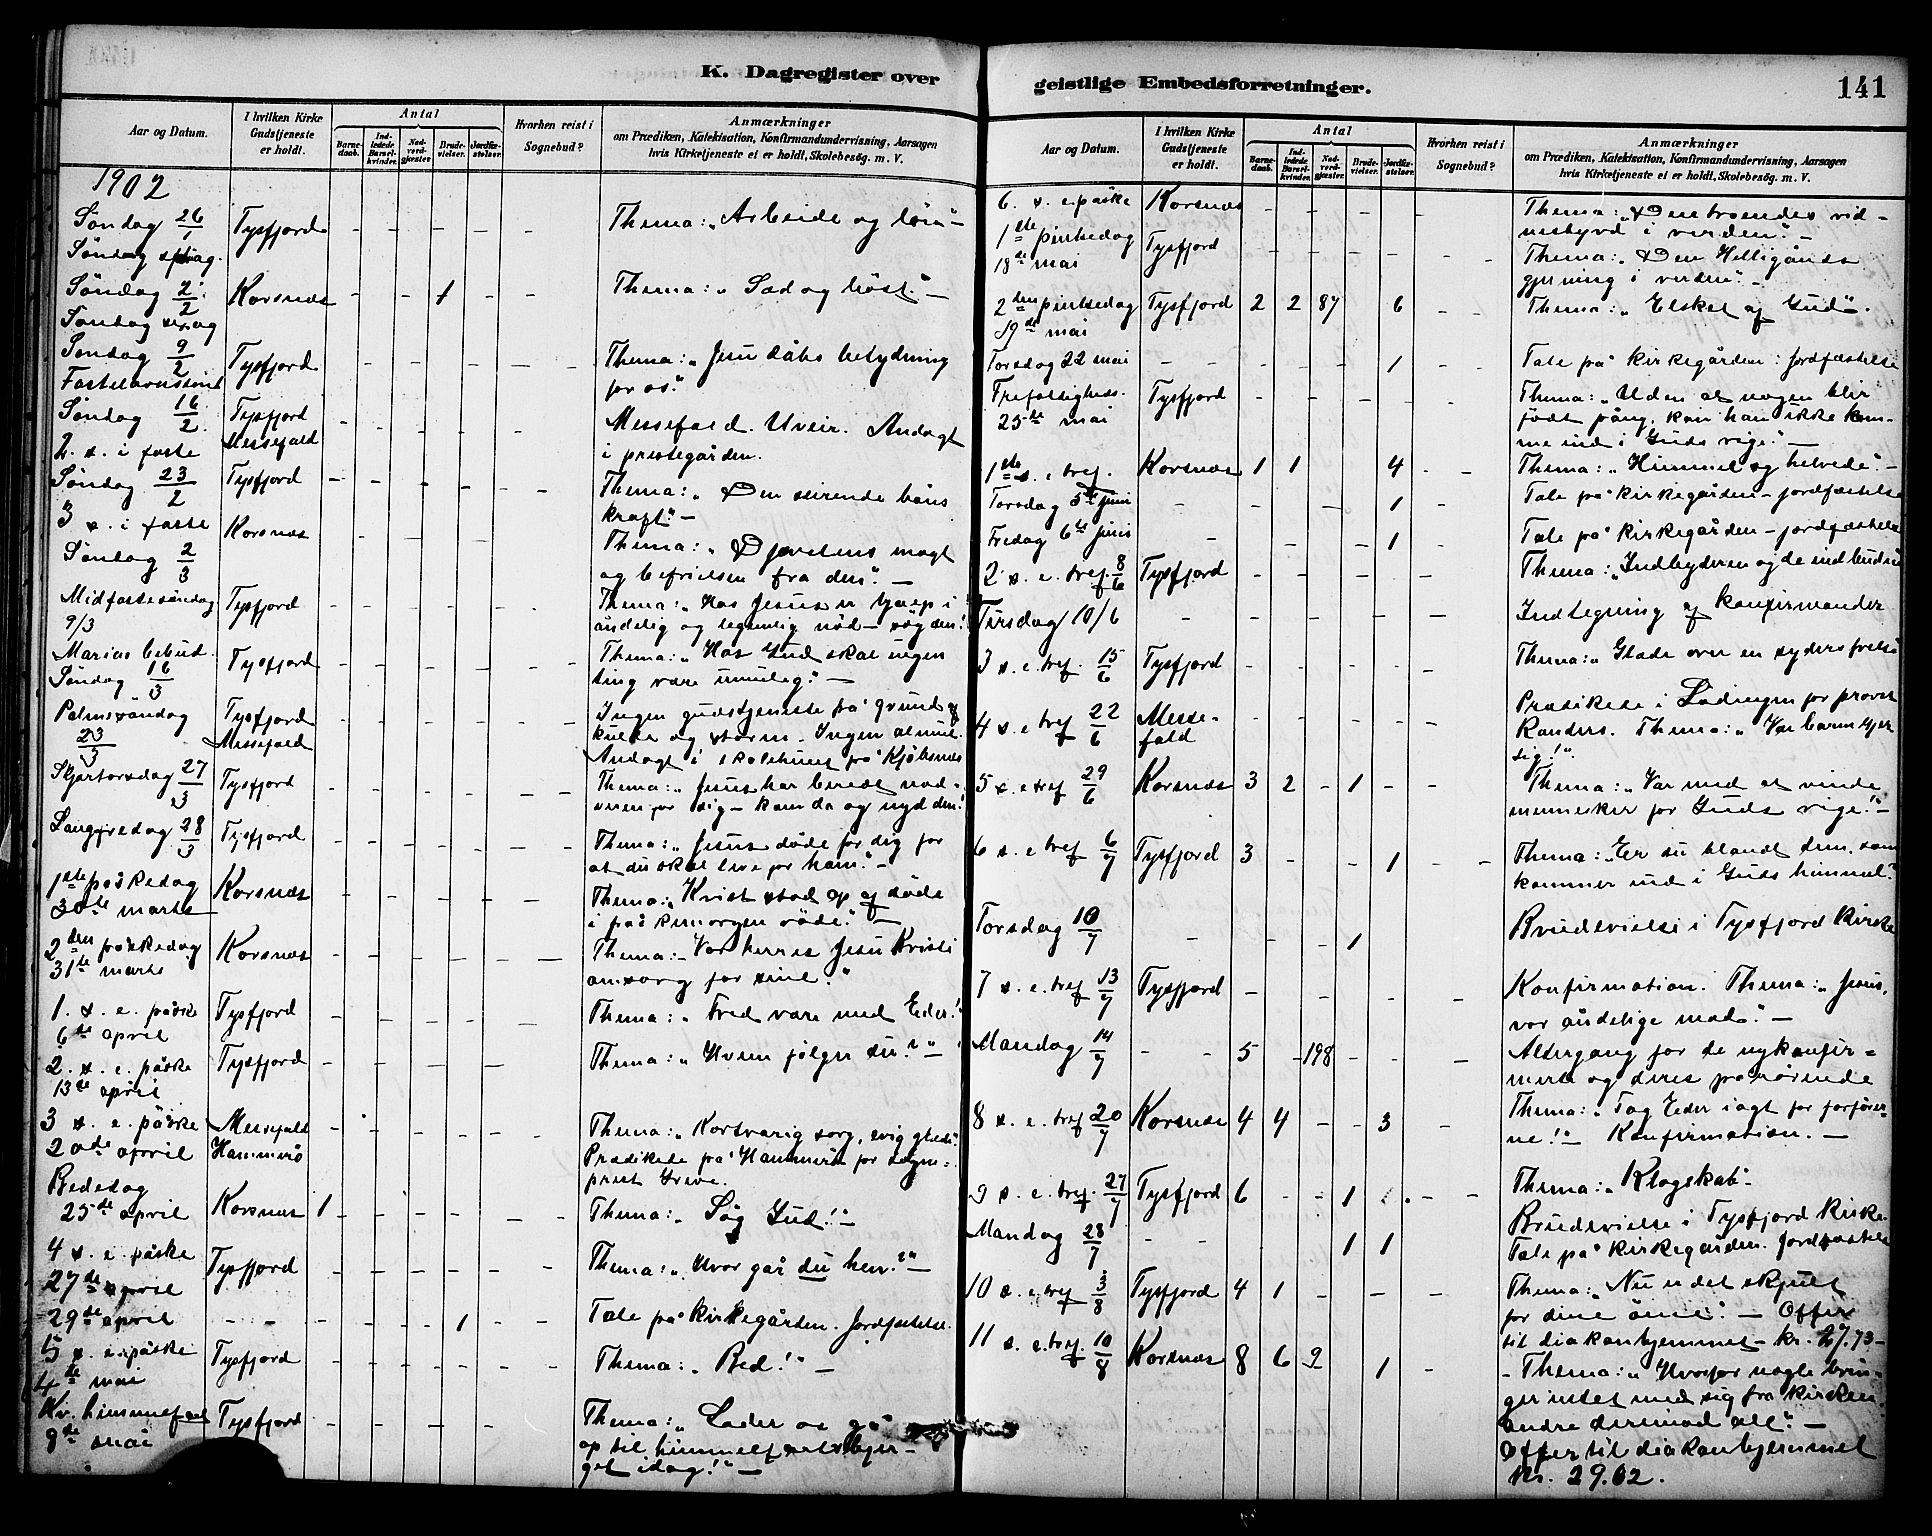 K. Dagregister over
Aar og Datum.
I hvilken Kirke Gudstjeneste er holdt.
Antal
Barnedaab.
Indledede Barselkvinder.
Nadverdgjæster.
Brudevielser.
Jordfæstelser.
Hvorhen reist i Sognebud?
Anmærkninger
om Prædiken, Katekisation, Konfirmandundervisning, Aarsagen
hvis Kirketjeneste ei er holdt, Skolebesøg. m. V.
1902
Søndag 26/1 Tysfjord - - - - - - Thema: „Arbeide og løn" -
Søndag
Søndag 2/2 Korsnæs - - 1 - - Thema: „Sæd og høst." -
Søndag
Søndag 9/2 Tysfjord - - - - - - Thema: „Jesu dåbs betydning
for os."
Søndag 16/2 Tysfjord
Messefald - - - - - - Messefald. Uveir. Andagt
2. s. i faste
i prestegården.
Søndag 23/2 Tysfjord - - - - - - Thema: „Den seirende bøns
kraft." -
3 s. i faste
Søndag 2/3 Korsnæs - - - - - - Thema: „Djævelens magt
og befrielsen fra den". -
Midfastesøndag
9/3 Tysfjord - - - - - - Thema: „Hos Jesus er hjælp i
åndelig og legemlig nød - søg den!
Mariæ bebud.
Søndag 16/3 Tysfjord - - - - - - Thema: „Hos Gud skal ingen
ting være umulig". -
Palmesøndag
23/3 Tysfjord
Messefald - - - - - - Ingen gudstjeneste på grund af
kulde og storm. Ingen almue.
Andagt i skolehuset på Kjøbsnes
Skjærtorsdag 27/3 Tysfjord - - - - - - Thema: „Jesus har beredt nad-
veren for dig - kom da og nyd den!
Langfredag 28/3 Tysfjord - - - - - - Thema: „Jesus døde for dig for
at du skal leve for ham". -
1ste påskedag
30te marts Korsnæs - - - - - - Thema: „Krist stod op af døde
i påskemorgen røde". -
2den påskedag
31te marts Korsnæs - - - - - - Thema: „Vor herres Jesu Kristi
omsorg for sine."
1. s. e. påske
6te april Tysfjord - - - - - - Thema: „Fred være med Eder!"
2. s. e. påske
13de april Tysfjord - - - - - - Thema: „Hvem følger du?" -
3 s. e. påske
20de april Messefald
Hammerö - - - - - - Thema: „Kortvarig sorg, evig glæde".
Prædikede på Hammerö for sogne-
prest Greve.
Bededag
25de april Korsnæs 1 - - - - - - Thema: „Søg Gud!" -
4 s. e. påske
27de april Tysfjord - - - - - - Thema: „Hvor går du hen?" -
29de april - - - - - 1 - - Tale på kirkegården. Jordfæstelse.
5 s. e. påske
4de mai Tysfjord - - - - - - Thema: „Bed!" -
Kr. himmelfart
8de mai Tysfjord - - - - - - Thema: „Lader os gå
op til himmelfartsbjer-
get idag!" -
geistlige Embedsforretninger.
141
Aar og Datum.
I hvilken Kirke Gudstjeneste er holdt.
Antal
Barnedaab.
Indledede Barselkvinder.
Nadverdgjæster.
Brudevielser.
Jordfæstelser.
Hvorhen reist i Sognebud?
Anmærkninger
om Prædiken, Katekisation, Konfirmandundervisning, Aarsagen
hvis Kirketjeneste ei er holdt, Skolebesøg. m. V.
6. s. e. påske Korsnæs - - - - - Thema: „Den troendes vid-
nesbyrd i verden." -
1ste pintsedag
18de mai Tysfjord - - - - - - Thema: „Den Helligånds
gjerning i verden". -
2den pintsedag
19de mai Tysfjord 2 2 87 6 - - Thema: „Elsket af Gud".
Torsdag 22 mai - - - - 1 - - Tale på kirkegården: Jordfæstelse
Trefoldigheds.
25de mai Tysfjord - - - - - - Thema: „Uden at nogen blir
født påny, kan han ikke kom-
me ind i Guds rige." -
1ste s. e. tref. Korsnæs 1 1 4 - - Thema: „Himmel og helvede". -
Torsdag 5te juni - - - 1 - Tale på kirkegården - jordfæstelse
Fredag 6te juni - - - 1 - Tale på kirkegården - jordfæstelse
2 s. e. tref. 8/6 Tysfjord - - - - - - Thema: „Indbyderen og de indbudne
Tirsdag 10/6 - - - - - - Indtegning af konfirmander
3 s. e. tref. 15/6 Tysfjord - - - - - - Thema: „Glæde over en synders frelse
4 s. e. tref 22/6 Messe-
fald - - - - - - Prædikede i Lødingen for provst
Randers. Thema: „Vær barmhjer-
tig!".
5 s. e tref 29/6 Korsnæs 3 2 - 1 - - Thema: „Vær med at vinde
mennesker for Guds rige!" -
6 s. e tref 6/7 Tysfjord 3 - - 1 - - Thema: „Er du blandt dem, som
kommer ind i Guds himmel?
Torsdag 10/7 - - - 1 Brudevielse i Tysfjord Kirke
7 s. e. tref 13/7 Tysfjord - - - - - - Konfirmation. Thema: „Jesus,
vor åndelige mad". -
Mandag 14/7 - - 5 - 198 - - - Altergang for de nykonfir-
merte og deres pårørende
8 s. e. tref 20/7 Korsnæs 4 4 - - 3 - - Thema: „Tag Eder iagt for forføre-
ne!" - Konfirmation. -
9 s. e. tref. 27/7 Tysfjord 6 - - 1 - - Thema: „Klogskab".
Mandag 28/7 - - - - 1 1 - Brudevielse i Tysfjord Kirke.
Tale på kirkegården. Jordfæstelse
10 s. e tref 3/8 Tysfjord 4 1 - - - - Thema: „Nu er det skjult
for dine öine". - Offer
til diakonhjemmet - kr. 27.73 -
11 s. e. tref. 10/8 Korsnæs 8 6 2 1 - - Thema: „Hvorfor nogle brin-
ger intet med sig fra kirken
andre derimod alt". -
Offer til diakonhjemmet
Kr. 29.02.